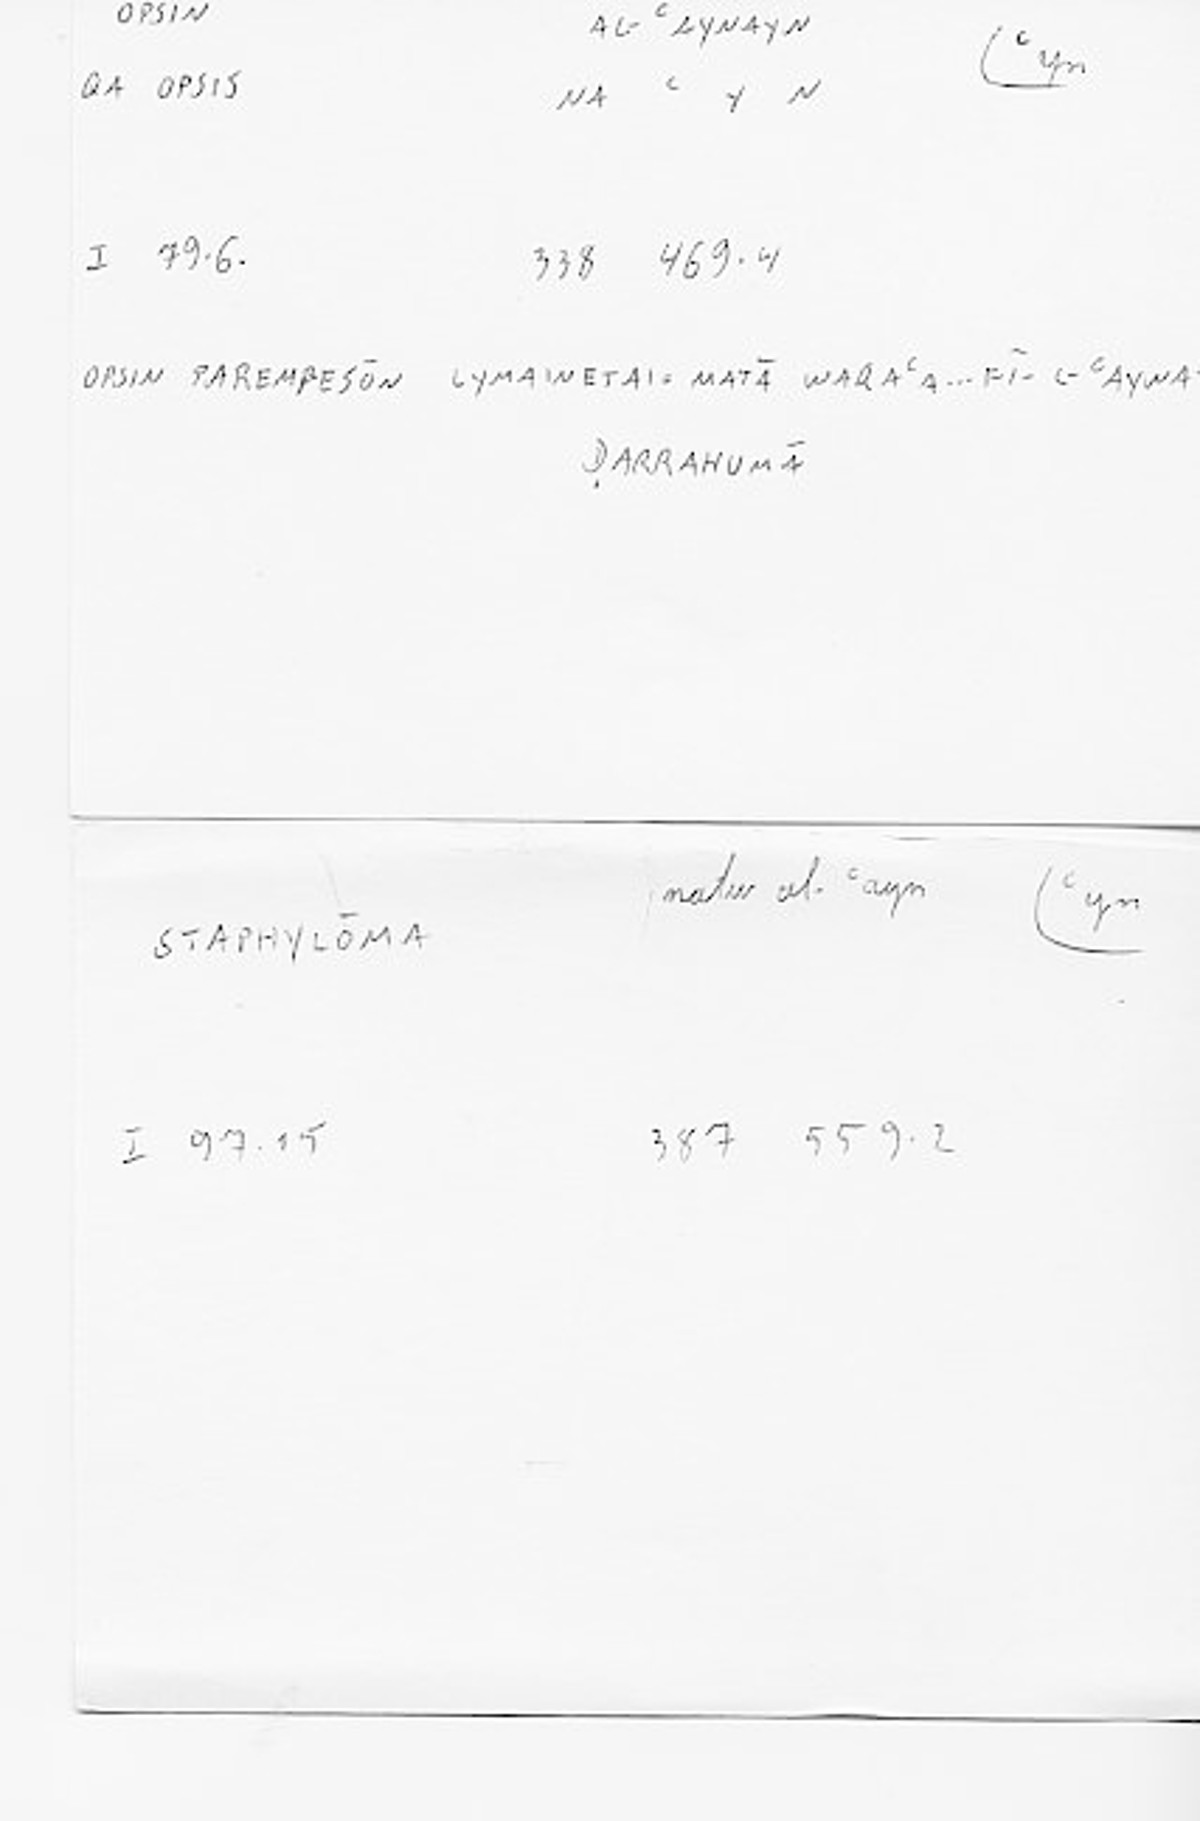 OPSIN AL-ᶜAYNAYN (ᶜyn
QA OPSIS NA ᶜ Y N
I 79.6. 338 469.4
OPSIN PAREMPESŌN LYMAINETAI: MATĀ WAQAᶜA... FĪ- L-ᶜAYNA
ḌARRAHUMĀ
STAPHYLŌMA natw al-ᶜayn (ᶜyn
I 97.15 387 559.2